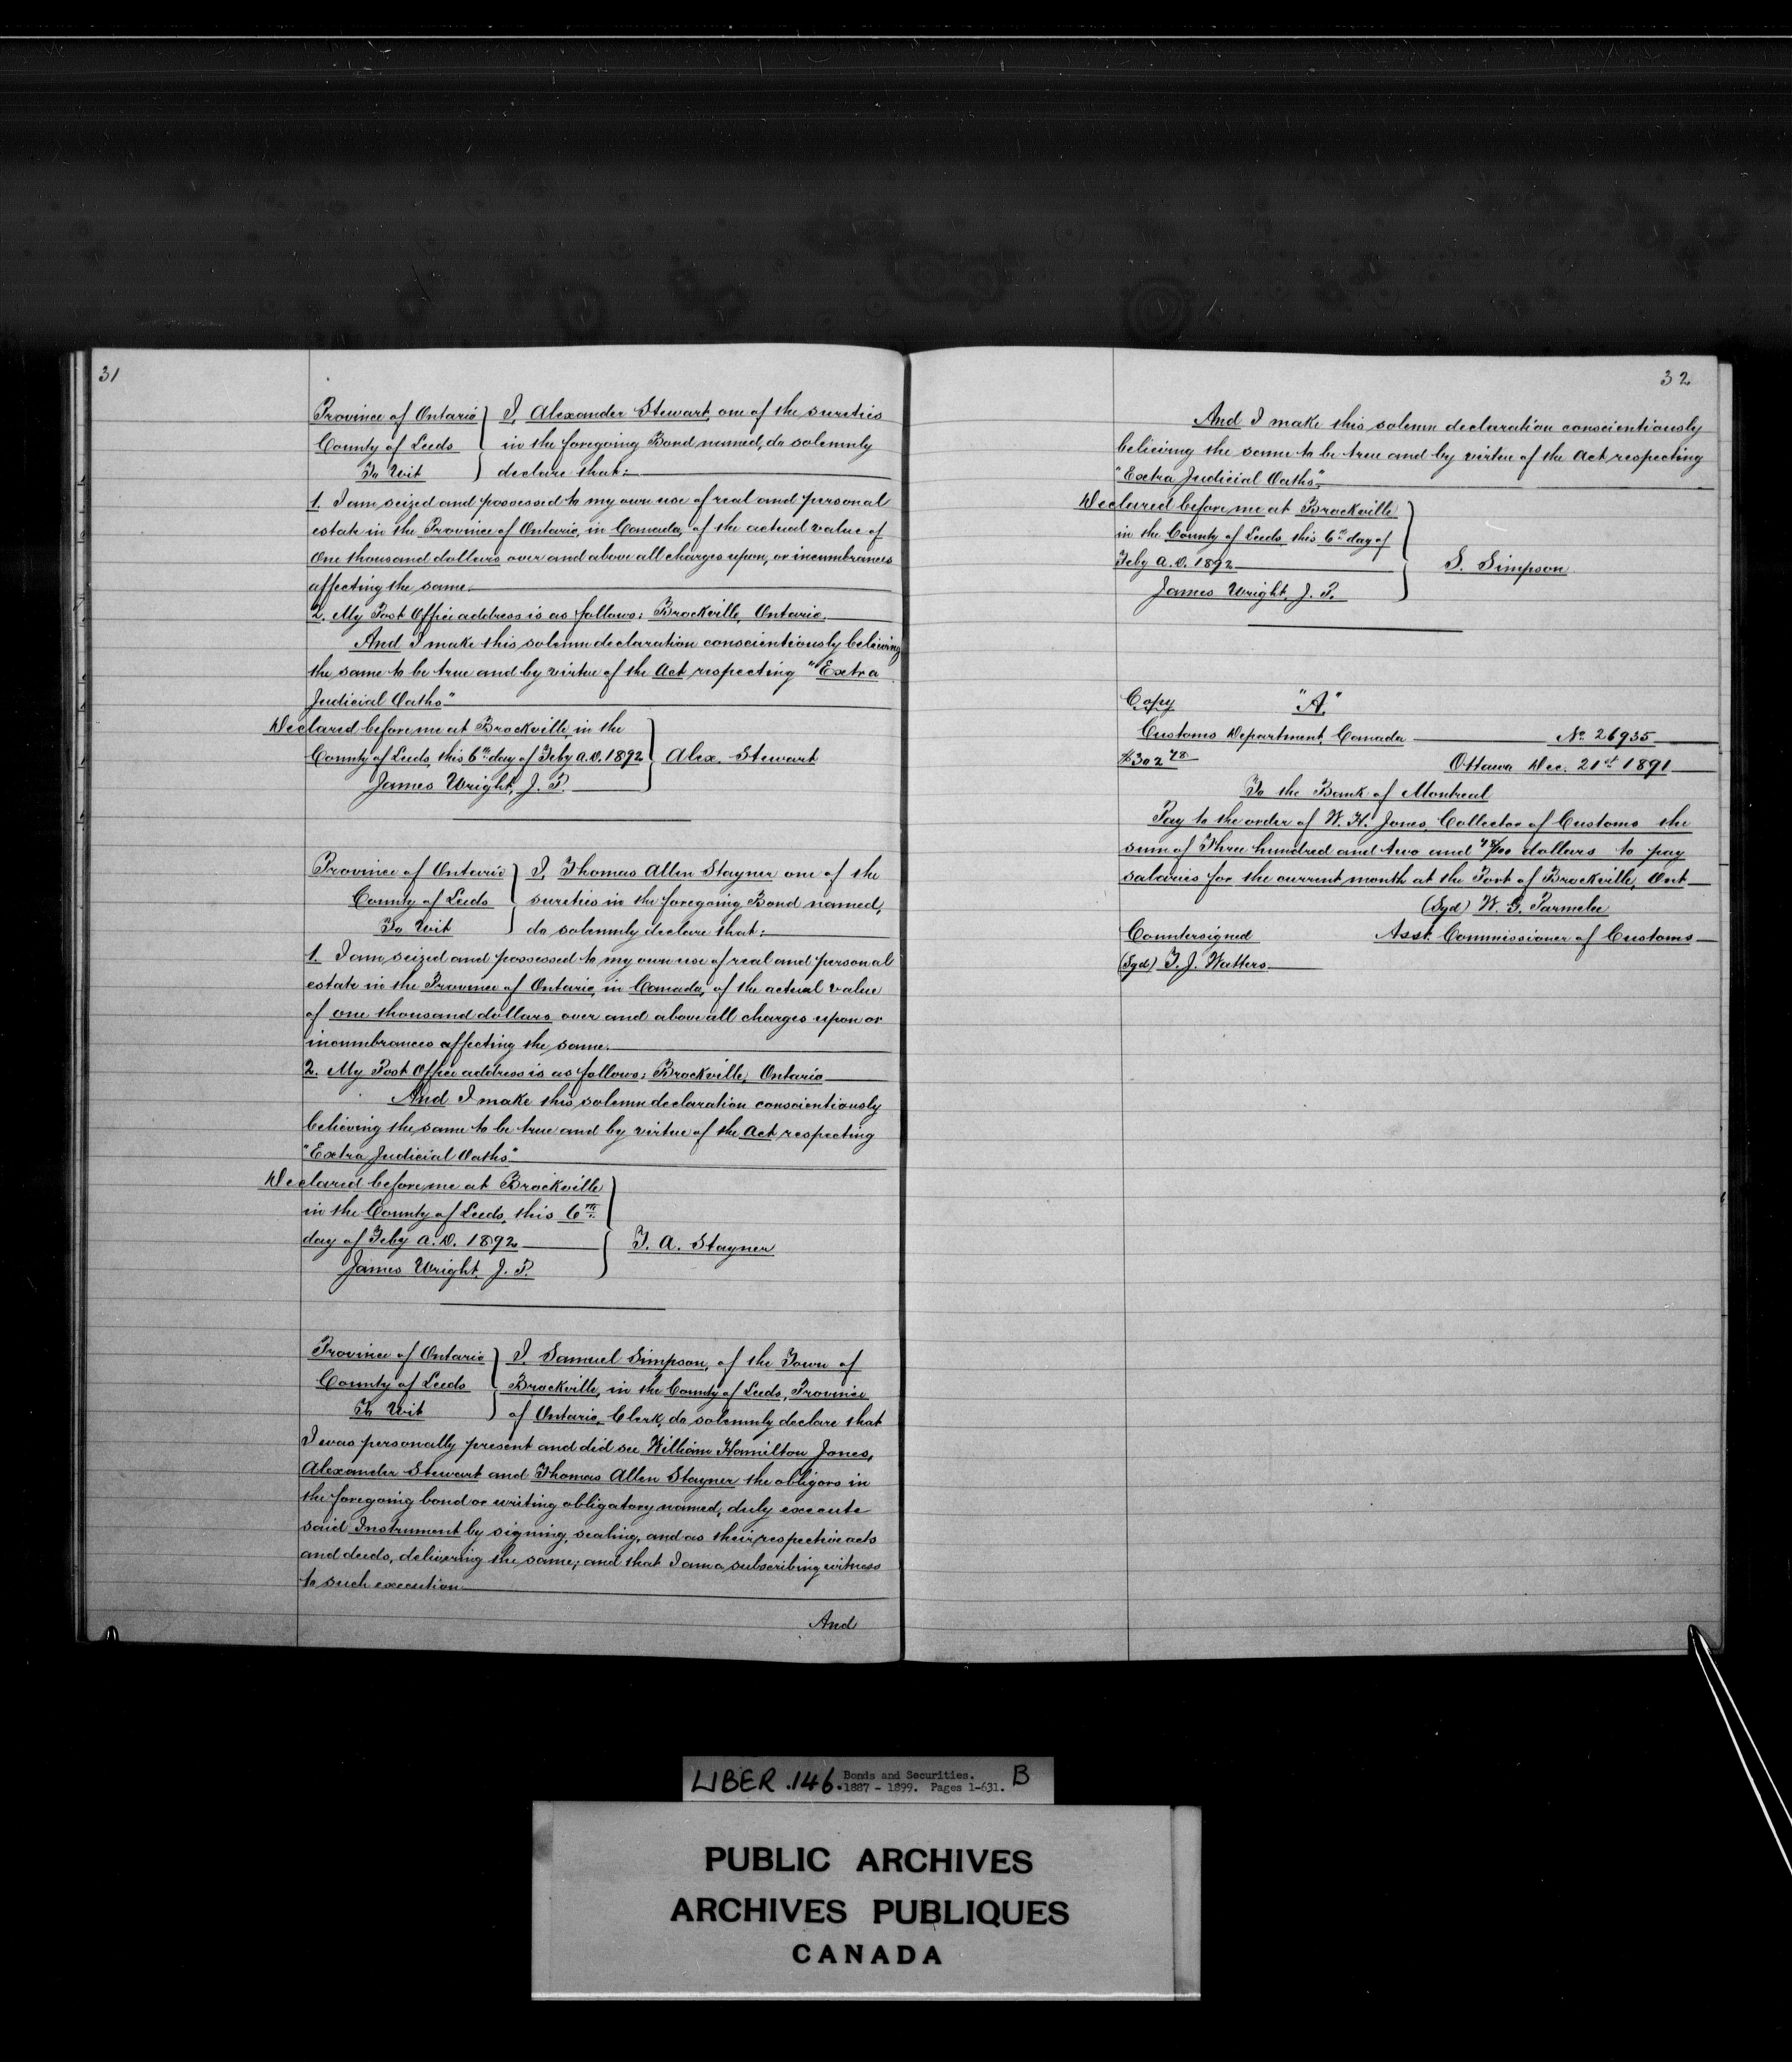 31
Province of Ontario } I, Alexander Stewart, one of the sureties
County of Leeds } in the foregoing Bond named, do solemnly
To Wit } declare that:
1. I am seized and possessed to my own use of real and personal
estate in the Province of Ontario, in Canada, of the actual value of
One thousand dollars over and above all charges upon, or incumbrances
affecting the same.
2. My Post Office address is as follows: Brockville, Ontario.
And I make this solemn declaration conscientiously believing
the same to be true and by virtue of the Act respecting "Extra
Judicial Oaths"
Declared before me at Brockville, in the
County of Leeds, this 6th day of Feby A.D. 1892 } Alex. Stewart
James Wright, J. P.
Province of Ontario } I, Thomas Allen Stayner one of the
County of Leeds } sureties in the foregoing Bond named,
To Wit } do solemnly declare that:
1. I am seized and possessed to my own use of real and personal
estate in the Province of Ontario, in Canada, of the actual value
of one thousand dollars over and above all charges upon or
incumbrances affecting the same.
2. My Post Office address is as follows: Brockville, Ontario
And I make this solemn declaration conscientiously
believing the same to be true and by virtue of the Act respecting
"Extra Judicial Oaths"
Declared before me at Brockville
in the County of Leeds, this 6th
day of Feby A.D. 1892 } T. A. Stayner
James Wright, J. P.
Province of Ontario } I, Samuel Simpson, of the Town of
County of Leeds } Brockville, in the County of Leeds, Province
To Wit } of Ontario, Clerk, do solemnly declare that
I was personally present and did see William Hamilton Jones,
Alexander Stewart and Thomas Allen Stayner the obligors in
the foregoing bond or writing obligatory named, duly execute
said Instrument by signing, sealing, and as their respective acts
and deeds, delivering the same; and that I am a subscribing witness
to such execution.
And
32
And I make this solemn declaration conscientiously
believing the same to be true and by virtue of the Act respecting
"Extra Judicial Oaths".
Declared before me at Brockville
in the County of Leeds, this 6th day of
Feby A.D. 1892 } S. Simpson
James Wright, J. P.
Copy "A"
Customs Department, Canada No. 26935
$302 48 Ottawa Dec. 21st 1891
To the Bank of Montreal
Pay to the order of W. H. Jones, Collector of Customs the
sum of Three hundred and two and 48/100 dollars to pay
salaries for the current month at the Port of Brockville, Ont
(Sgd) W. G. Parmelee
Countersigned Asst. Commissioner of Customs
(Sgd) T. J. Watters
LIBER .146. Bonds and Securities. B
1887 - 1899. Pages 1-631.
PUBLIC ARCHIVES
ARCHIVES PUBLIQUES
CANADA